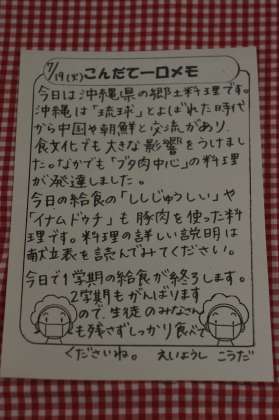 7/19(火)こんだて一口メモ
今日は沖縄県の郷土料理です。
沖縄は「琉球」とよばれた時代
から中国や朝鮮と交流があり、
食文化でも大きな影響をうけまし
た。なかでも「ブタ肉中心」の料理
が発達しました。
今日の給食の「ししじゅうしい」や
「イナムドゥチ」も豚肉を使った料
理です。料理の詳しい説明は
献立表を読んでみてください。
今日で1学期の給食が終ろします。
2学期もがんばります
ので、生徒のみなさん
も残さずしっかり食べて
くださいね。 えいようし こうだ